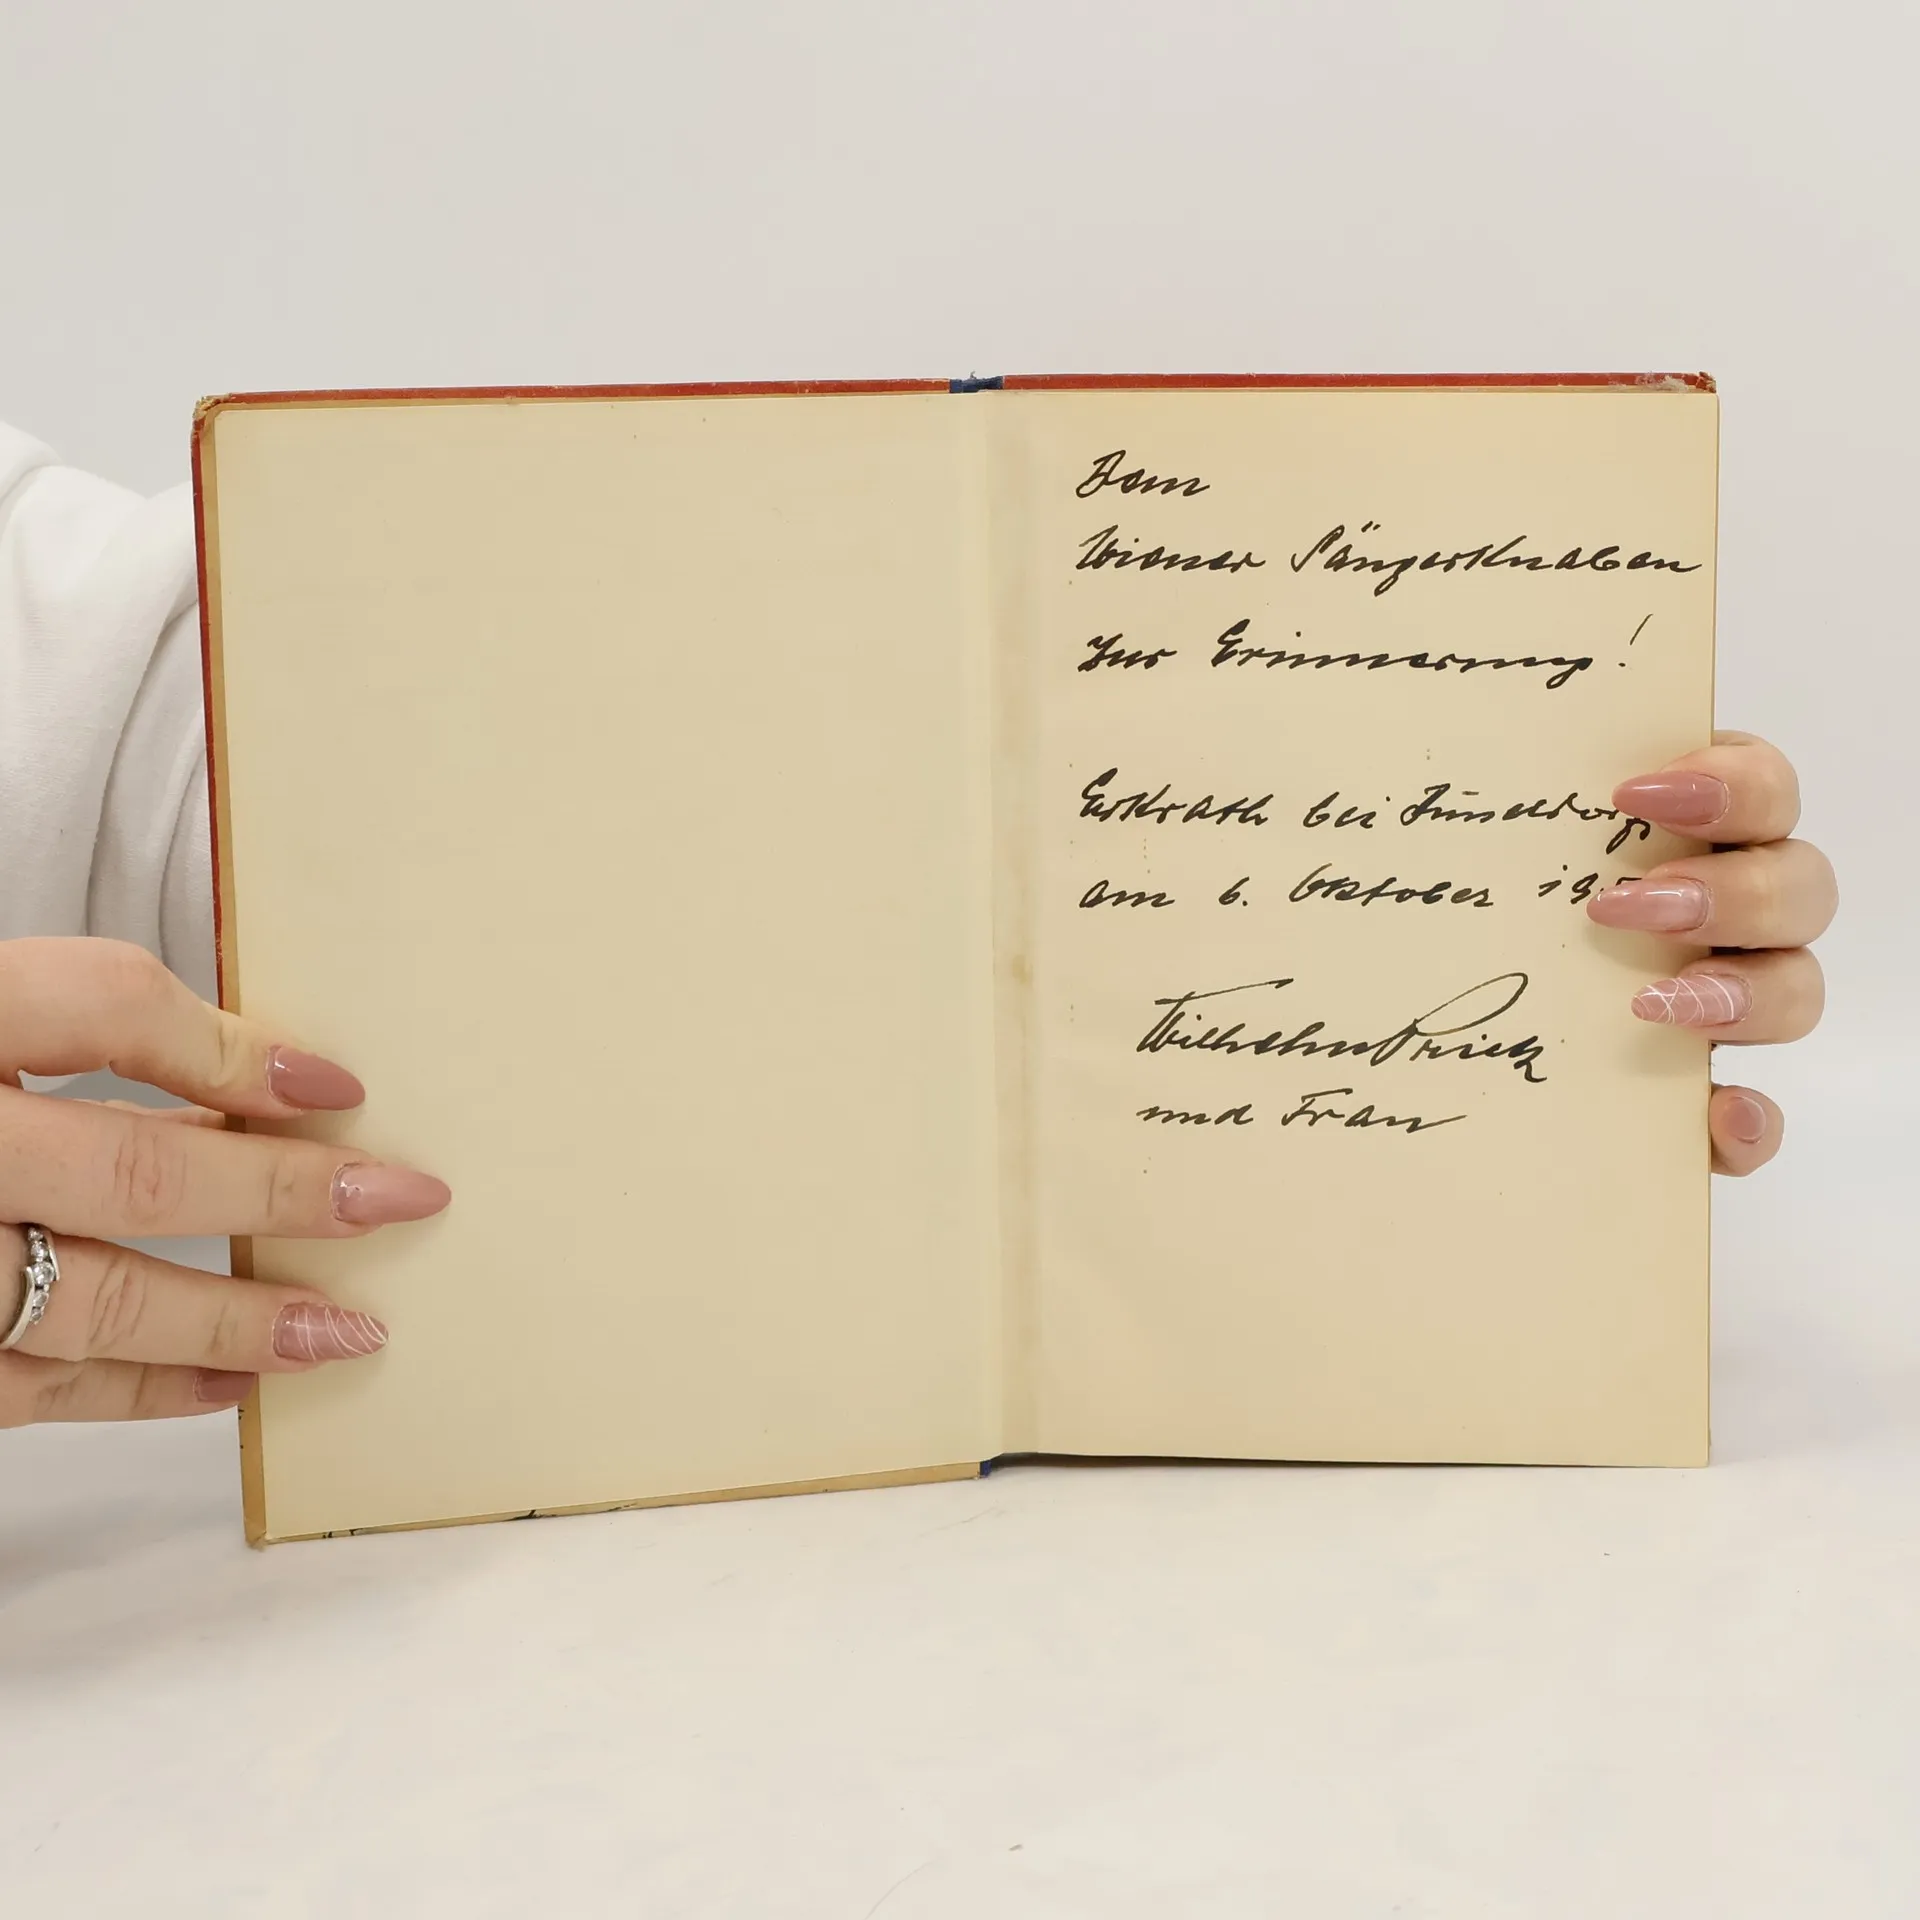 Dem
Wiener Sängerknaben
zur Erinnerung!
Erkrath bei Düsseldorf
am 6. Oktober 195
Wilhelm Prietz
und Frau